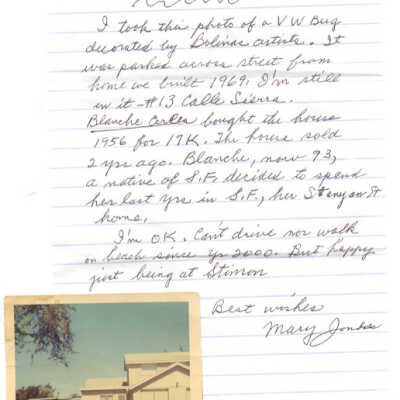 I took this photo of a VW Bug
decorated by Bolinas artists. It
was parked across street from
home we built 1969. I'm still
in it - #13 Calle Sierra.
Blanche bought the house
1956 for 17K. The house sold
2 yrs ago. Blanche, now 93,
a native of S.F. decided to spend
her last yrs in S.F., her Stanyan St
home.
I'm OK. Can't drive nor walk
on beach since yr 2000. But happy
just being at Stinson
Best wishes
Mary